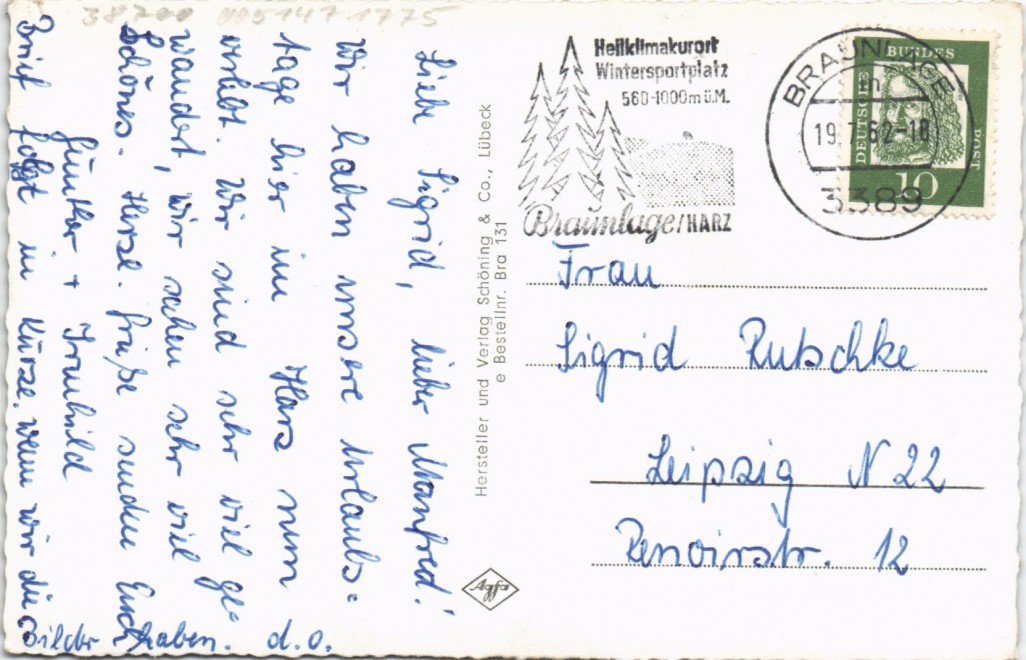 38700 005147 1775
Liebe Sigrid, lieber Manfred!
Wir haben unsere Urlaubs-
tage hier im Harz nun
verlebt. Wir sind sehr viel ge-
wandert, wir sahen sehr viel
Schönes. Herzl. Grüße senden Euch
Günther + Irmhild
Brief folgt in Kürze, wenn wir die
Bilder haben. d.o.
Hersteller und Verlag Schöning & Co., Lübeck
e Bestellnr. Bra 131
Agfa
Heilklimakurort
Wintersportplatz
560-1000m ü.M.
Braunlage/HARZ
BRAUNLAGE
19.7.62-18
3389
DEUTSCHE
BUNDES
POST
10
Frau
Sigrid Rutschke
Leipzig N 22
Renoirstr. 12